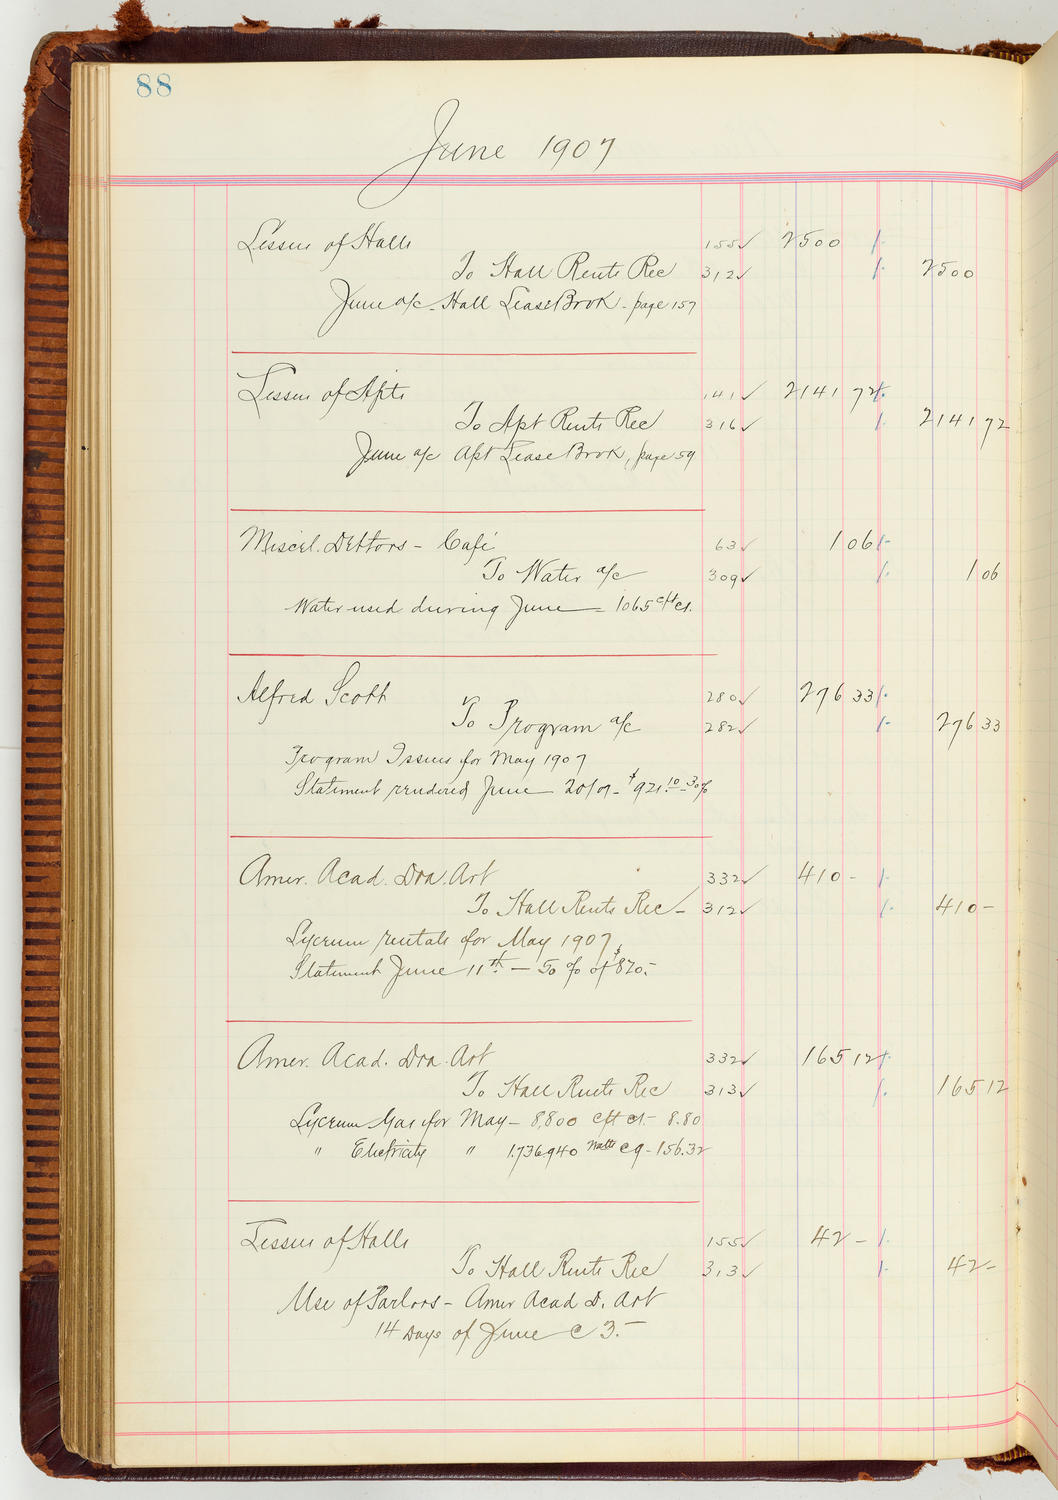 88
June 1907
Lessees of Halls 155 ✓ 2500
To Hall Rents Rec 312 ✓ 2500
June a/c - Hall Lease Book - page 157
Lessees of Apts 141 ✓ 2141 72
To Apt Rents Rec 316 ✓ 2141 72
June a/c Apt Lease Book, page 59
Miscel. Debtors - Café 63 ✓ 1 06
To Water a/c 309 ✓ 1 06
Water used during June = 1065 cft ct.
Alfred Scott 280 ✓ 276 33
To Program a/c 282 ✓ 276 33
Program Issues for May 1907
Statement rendered June 20/07 - $921.10 - 30%
Amer. Acad. Dra. Art 332 ✓ 410 -
To Hall Rents Rec - 312 ✓ 410 -
Lyceum rentals for May 1907
Statement June 11th - 50 % of $820.-
Amer. Acad. Dra. Art 332 ✓ 165 12
To Hall Rents Rec 313 ✓ 165 12
Lyceum Gas for May - 8,800 cft ct - 8.80
" Electricity " 1,736,940 Watts c 9 - 156.32
Lessees of Halls 155 ✓ 42 -
To Hall Rents Rec 313 ✓ 42 -
Use of Parlors - Amer Acad D. Art
14 Days of June c 3.-